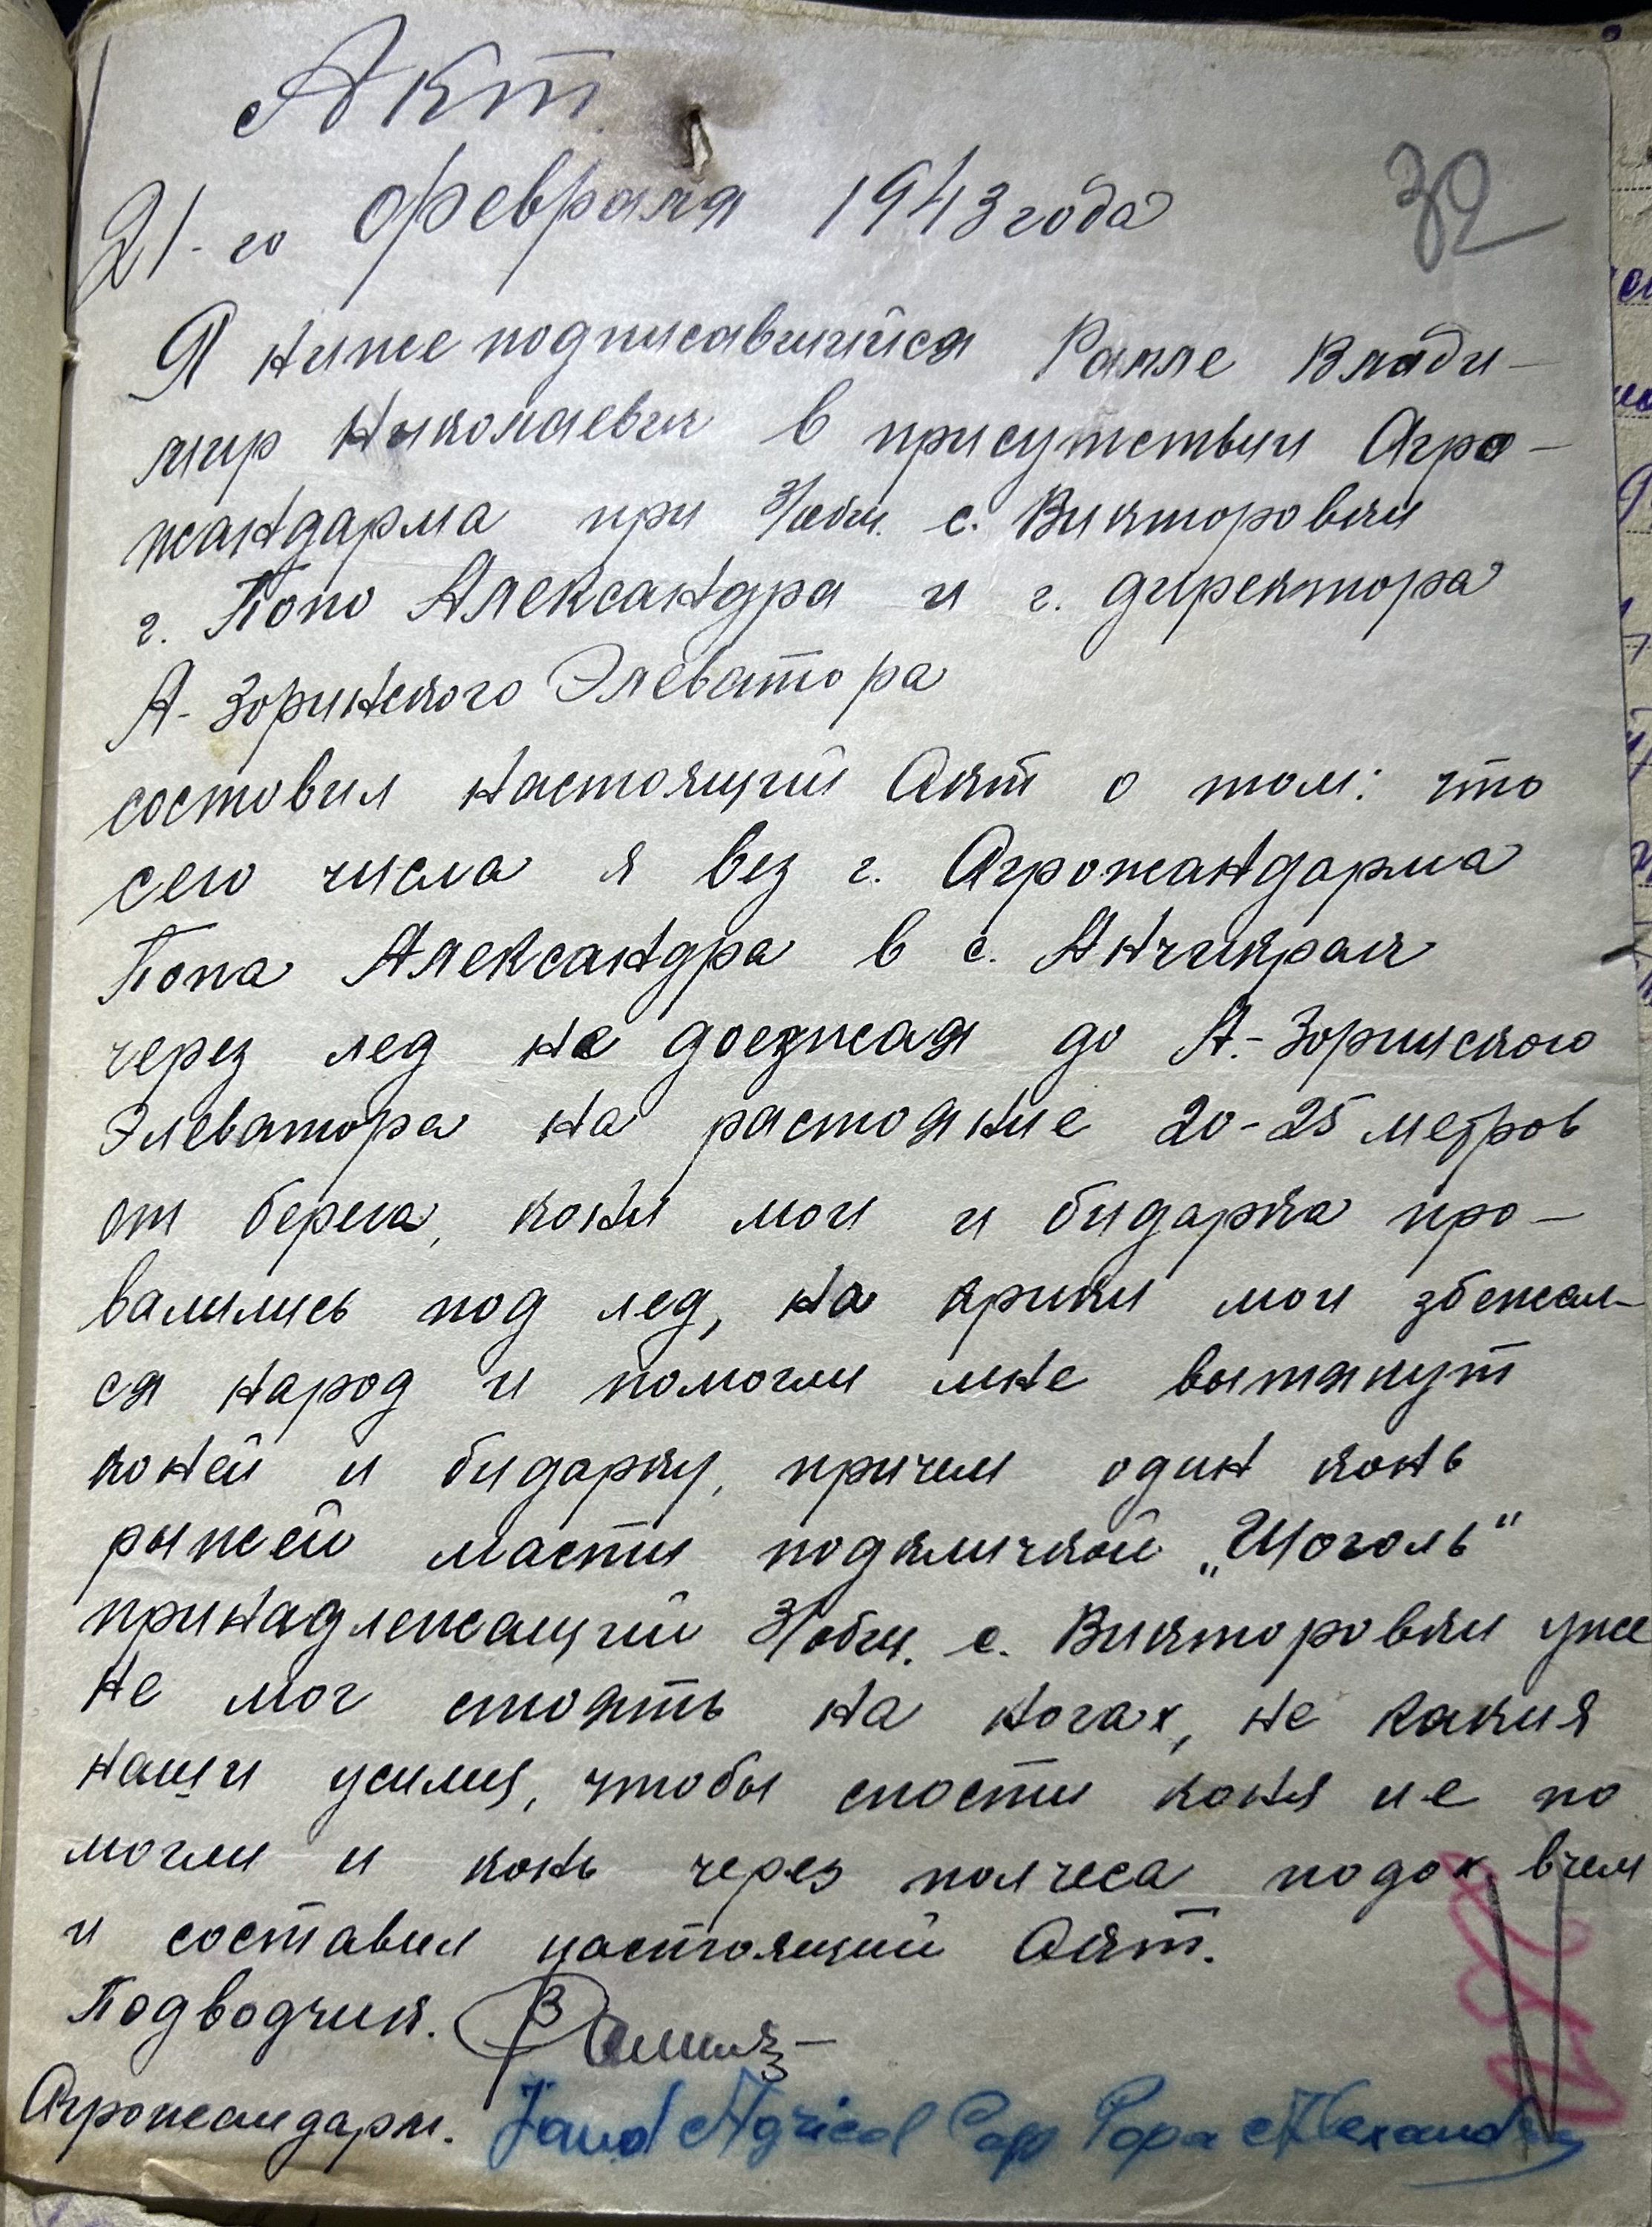 Акт
32
21-го февраля 1943 года
Я ниже подписавшийся Рапле Влади-
мир Николаевич в присутствии Агро-
жандарма при З/общ. с. Викторовки
г. Попо Александра и г. директора
А-Зоринского Элеватора
состовил настоящий Акт о том: что
сего числа я вез г. Агрожандарма
Попа Александра в с. Анчикрак
через лед не доезжая до А.-Зоринского
Элеватора на растояние 20-25 метров
от берега, кони мои и бидарка про-
валились под лед, на крики мои збежал-
ся народ и помогли мне вытянут
коней и бидарку, причем один конь
рыжей масти подкличкой „Щоголь"
принадлежащий З/общ. с. Викторовки уже
не мог стоять на ногах, не какия
наши усилия, чтобы спости коня не по
могли и конь через полчеса подох вчем
и составил настоящий Акт.
Подводчик.
Агрожандарм. Jand Agricol Cap Popa Alexandru